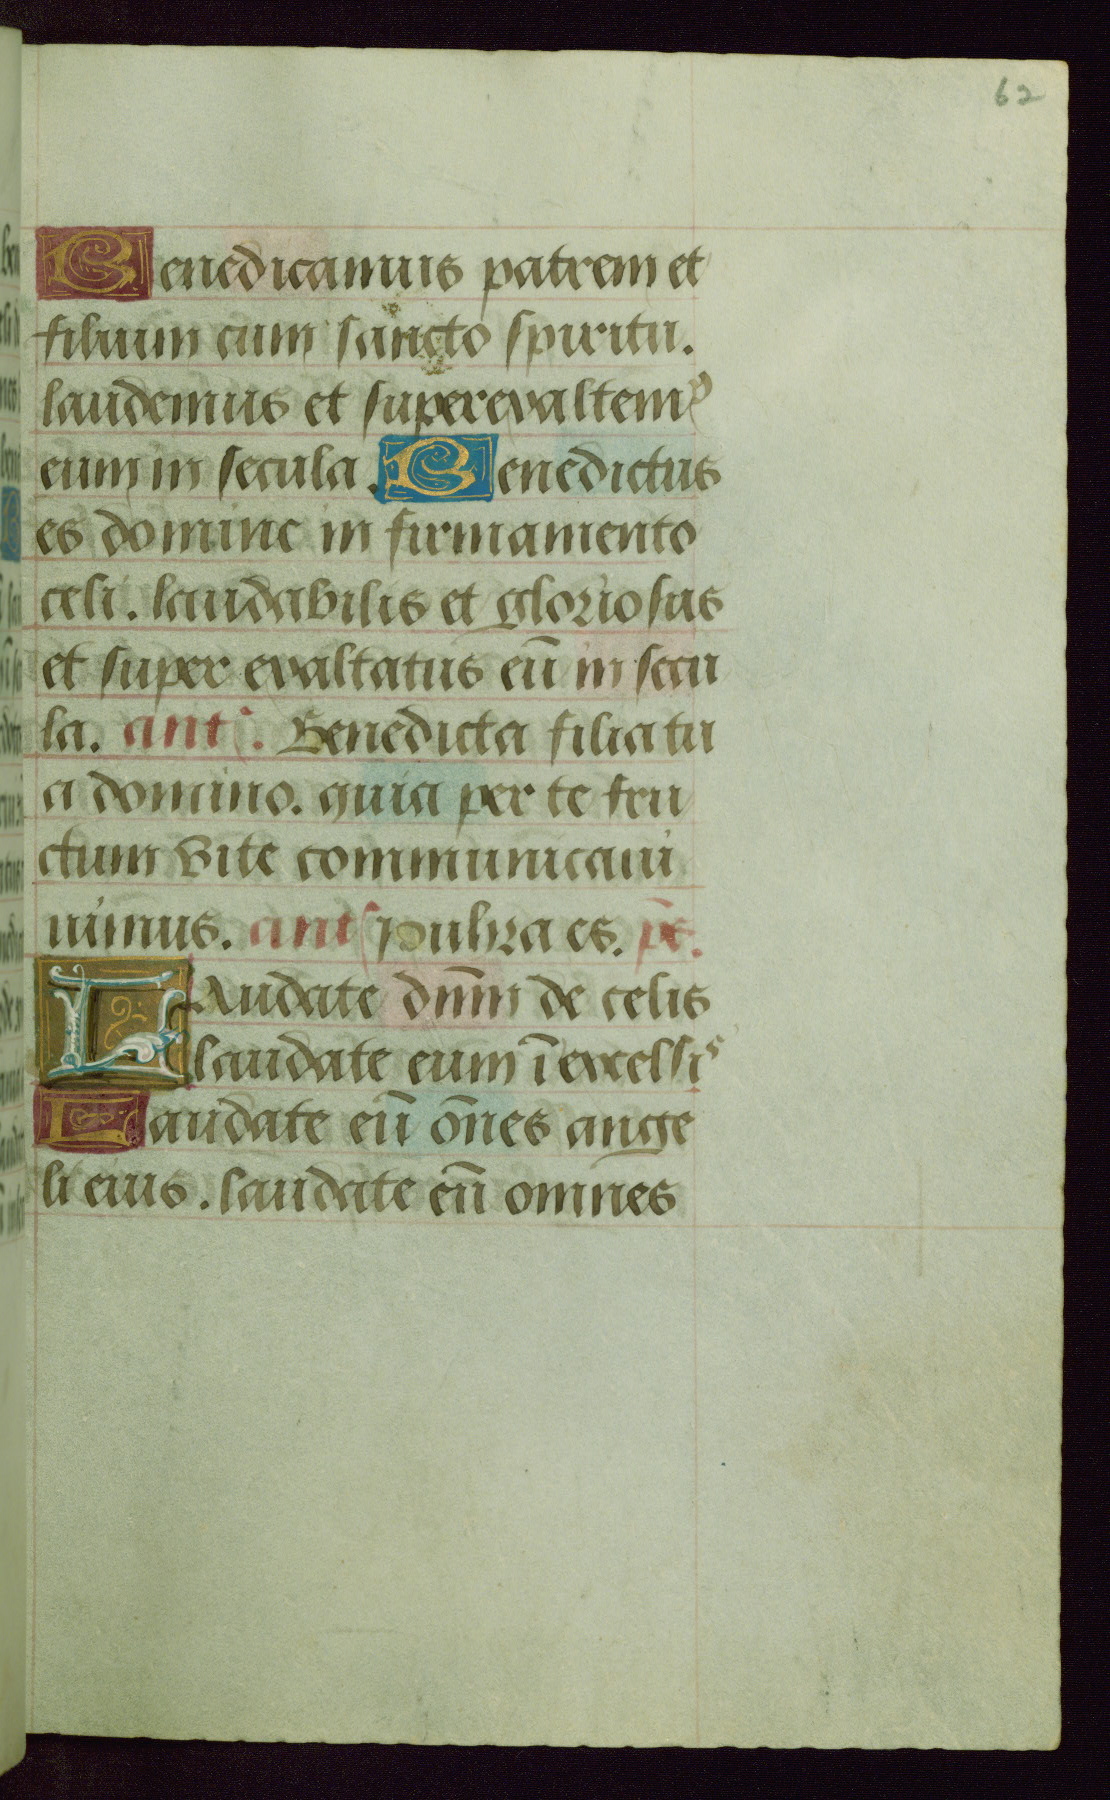 62
Benedicamus patrem et
filium cum sancto spiritu.
laudemus et superexaltemꝰ
eum in secula. Benedictus
es domine in firmamento
celi. laudabilis et gloriosus
et super exaltatus eū in secu
la. ant̾. Benedicta filia tu
a domino. quia per te fru
ctum vite communicaui
uimus. ant̾ Pulcra es. p̄s.
LAudate dn̄m de celis
laudate eum ī excelsis
Laudate eū om̄es ange
li eius. laudate eū omnes